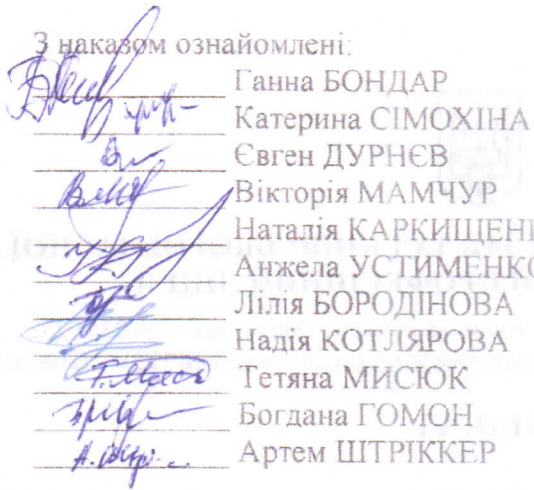 З наказом ознайомлені:
Ганна БОНДАР
Катерина СІМОХІНА
Євген ДУРНЄВ
Вікторія МАМЧУР
Наталія КАРКИЩЕН
Анжела УСТИМЕНКО
Лілія БОРОДІНОВА
Надія КОТЛЯРОВА
Тетяна МИСЮК
Богдана ГОМОН
Артем ШТРІККЕР